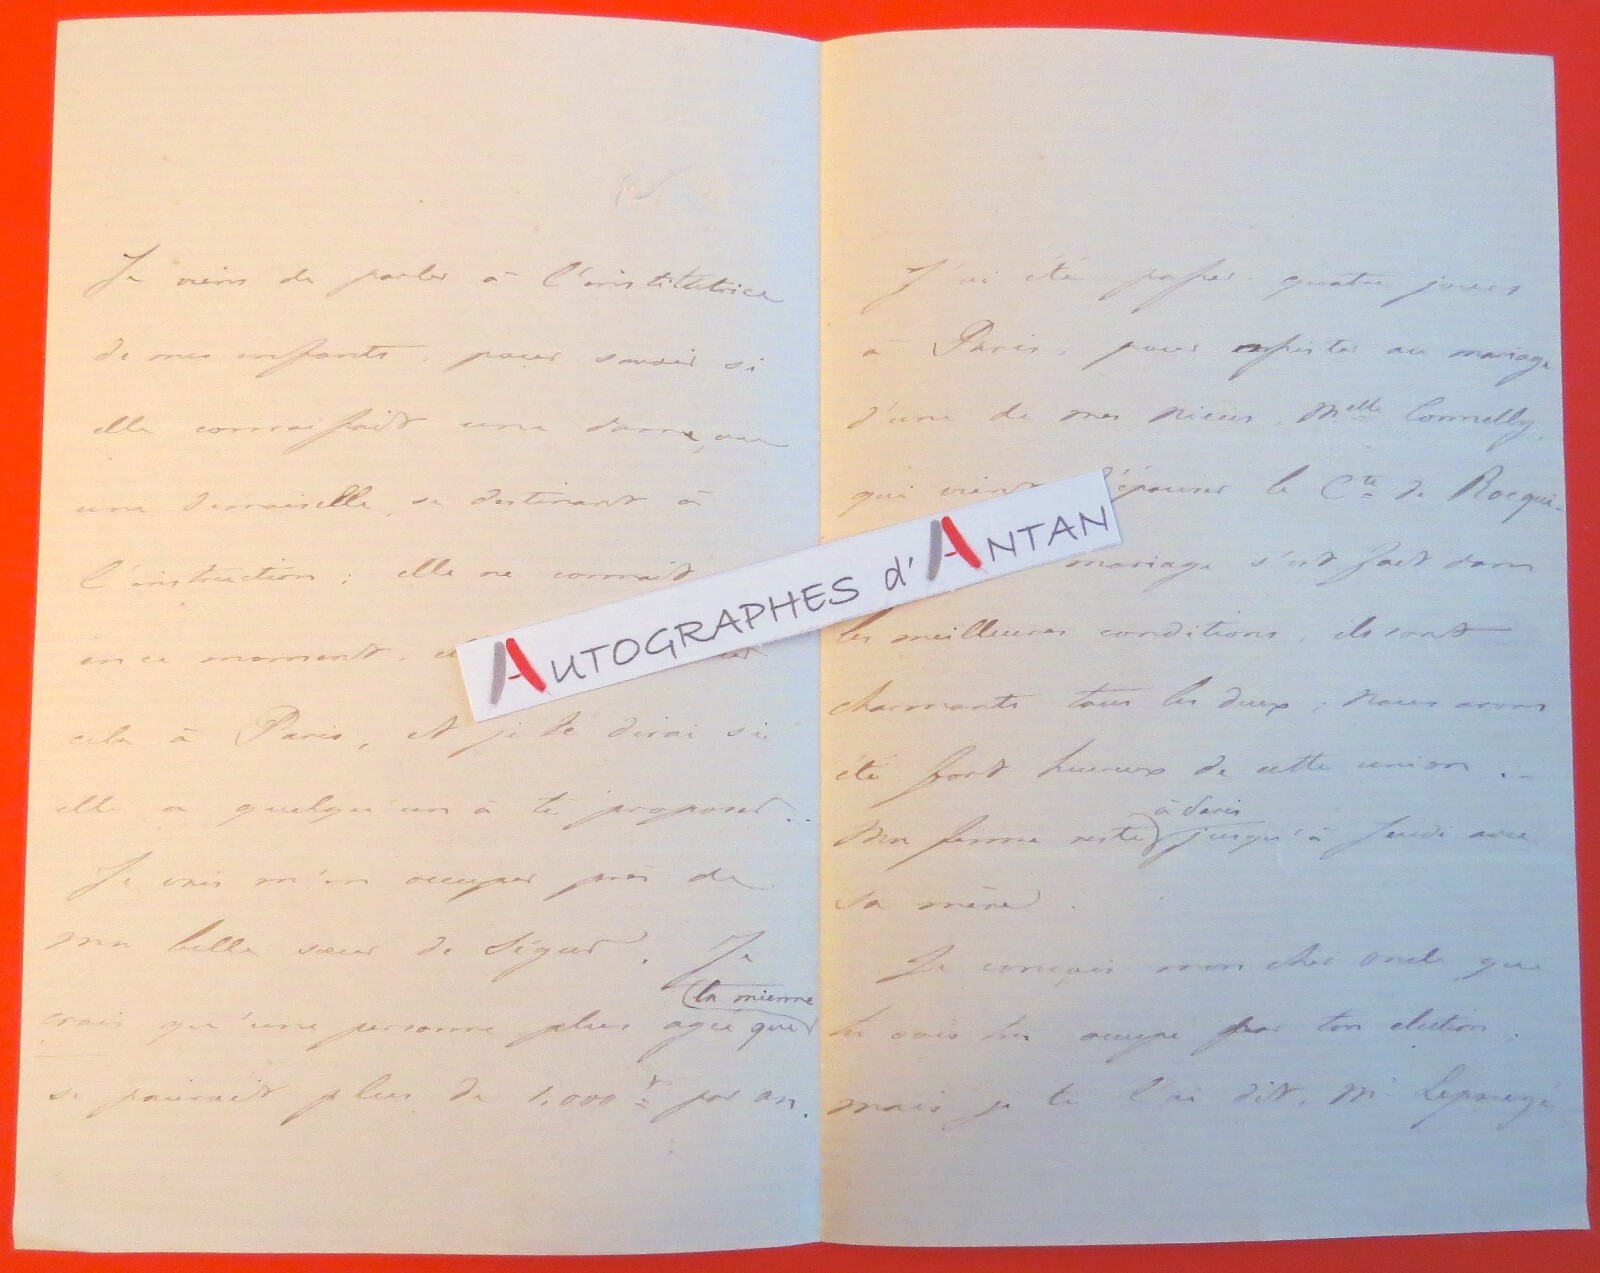 Je viens de parler à l'institutrice
de mes enfants, pour savoir si
elle connaissait une dame, ou
une demoiselle, se destinant à
l'instruction ; elle ne connait
en ce moment,
cela à Paris, et je te dirai si
elle a quelqu'un à te proposer..
Je vais m'en occuper près de
ma belle sœur de Ségur. Je
crois qu'une personne plus agée que la mienne
se paierait plus de 1.000 f par an.
J'ai été passer quatre jours
à Paris, pour assister au mariage
d'une de mes nièces, Melle Connelly,
qui vient d'épouser le Cte de Rocqui-
mariage s'est fait dans
les meilleures conditions, ils sont
charmants tous les deux ; nous avons
été fort heureux de cette union. -
Ma femme reste à Paris jusqu'à Jeudi avec
sa mère.
Je conçois mon cher oncle que
tu sois très occupé par ton élection.
mais je te l'ai dit, Mr
AUTOGRAPHES d'ANTAN